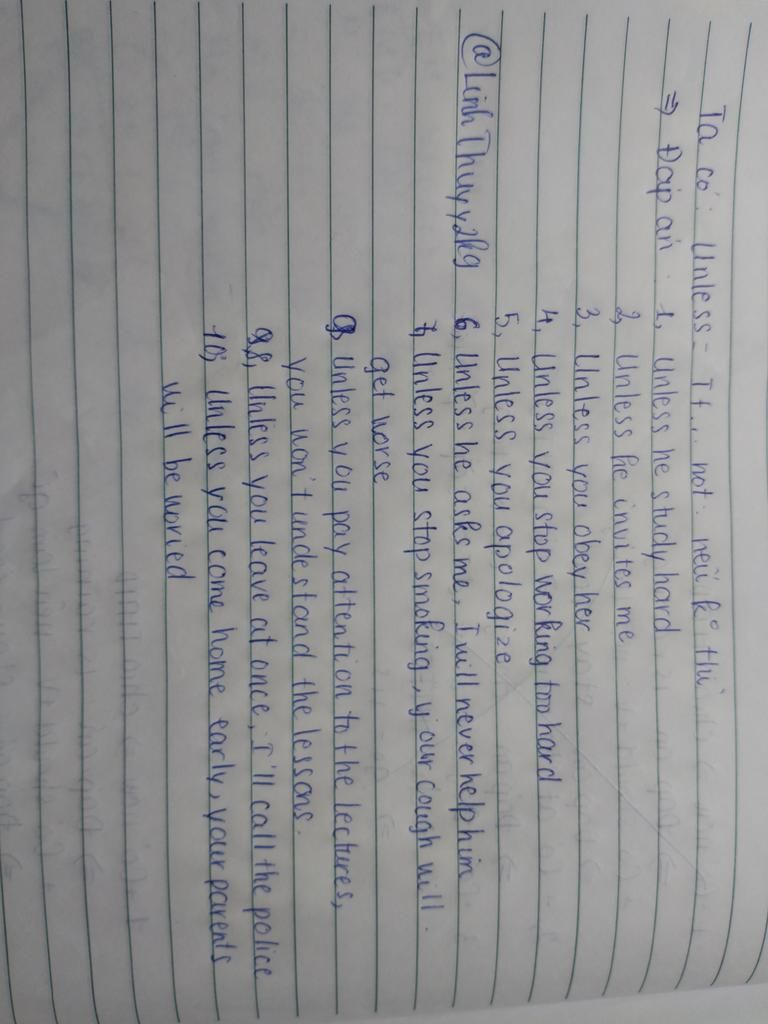 Ta có: Unless = If... not: nếu k° thì
⇒ Đáp án: 1, Unless he study hard
2, Unless he invites me
3, Unless you obey her
4, Unless you stop working too hard
5, Unless you apologize
@LinhThuyy2kg 6, Unless he asks me, I will never help him
7, Unless you stop smoking, your cough will
get worse
9, Unless you pay attention to the lectures,
you won't undestand the lessons.
8, Unless you leave at once, I'll call the police
10, Unless you come home early, your parents
will be woried